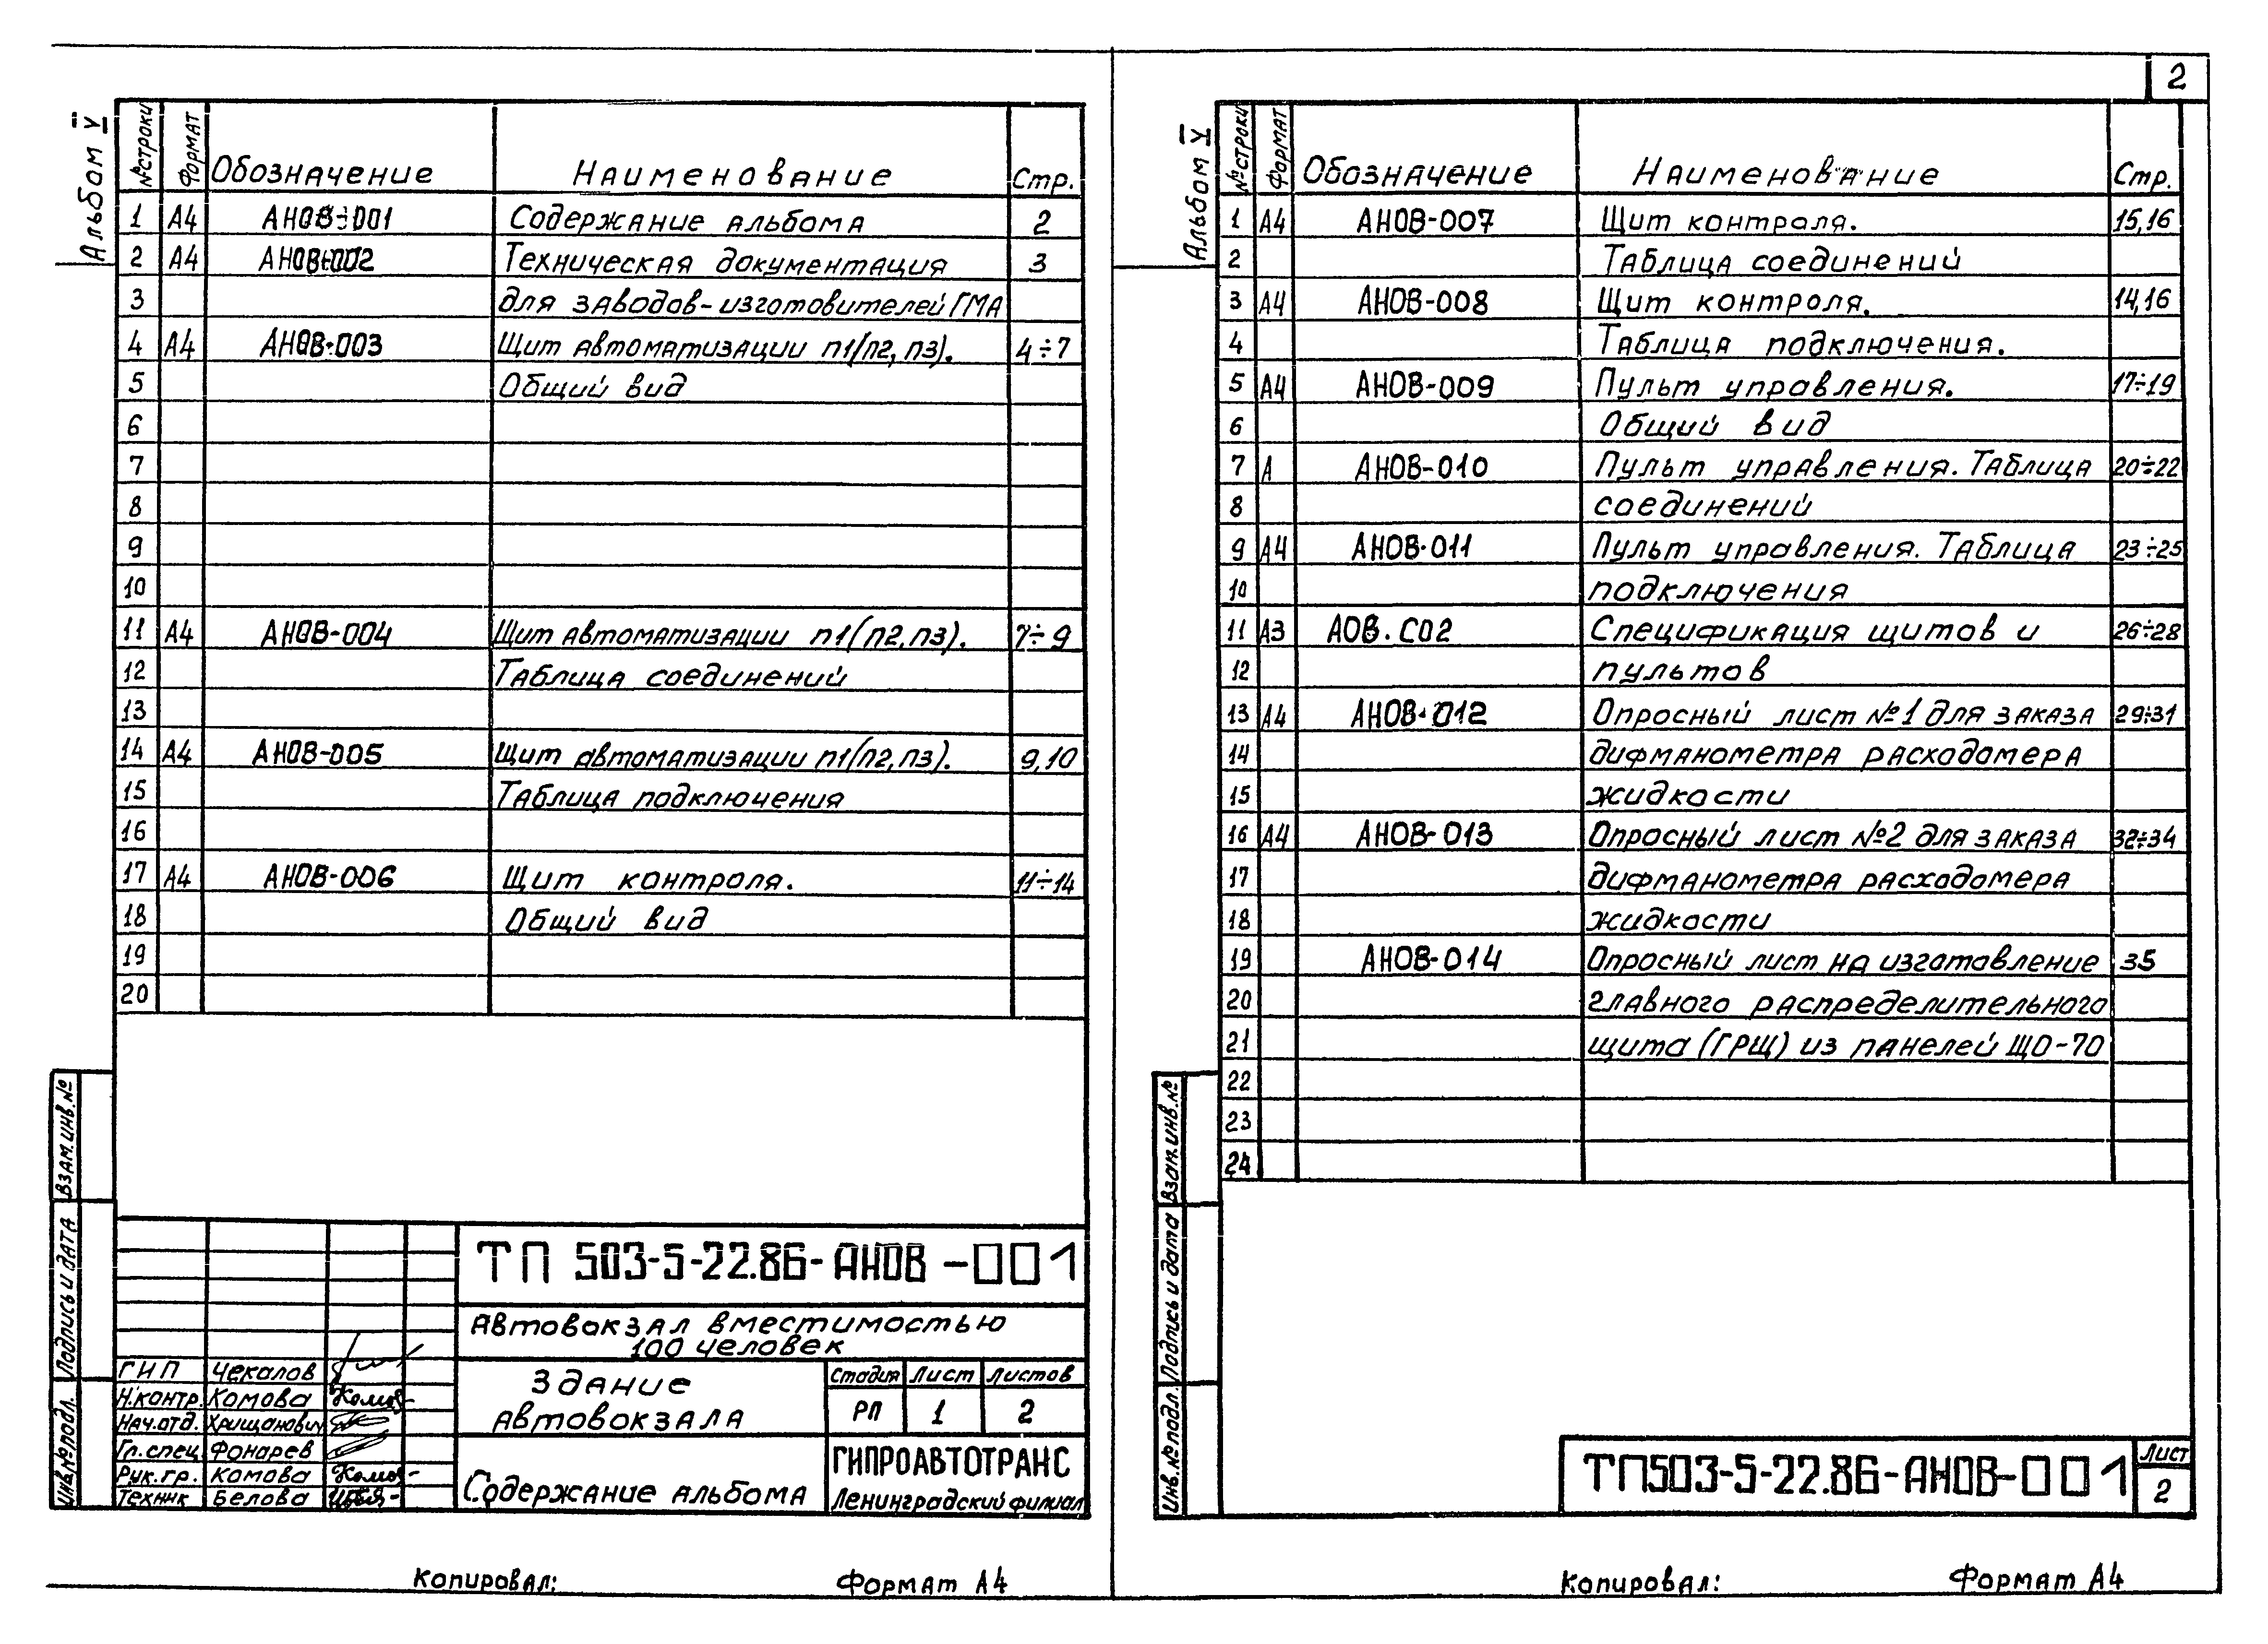 Альбом V
№ строки Формат Обозначение Наименование Стр.
1 А4 АНОВ-001 Содержание альбома 2
2 А4 АНОВ-002 Техническая документация 3
3 для заводов-изготовителей ГМА
4 А4 АНОВ-003 Щит автоматизации П1/П2, П3). 4÷7
5 Общий вид
6
7
8
9
10
11 А4 АНОВ-004 Щит автоматизации П1(П2,П3). 7÷9
12 Таблица соединений
13
14 А4 АНОВ-005 Щит автоматизации П1/П2,П3). 9,10
15 Таблица подключения
16
17 А4 АНОВ-006 Щит контроля. 11÷14
18 Общий вид
19
20
Взам.инв.№
Подпись и дата
Инв.№подл.
ТП 503-5-22.86-АНОВ-001
Автовокзал вместимостью
100 человек
ГИП Чекалов
Н.контр. Комова
Нач.отд. Хрищанович
Гл.спец Фонарев
Рук.гр. Комова
Техник Белова
Здание
автовокзала
Стадия Лист Листов
РП 1 2
Содержание альбома
ГИПРОАВТОТРАНС
Ленинградский филиал
Копировал: Формат А4
2
Альбом V
№ строки Формат Обозначение Наименование Стр.
1 А4 АНОВ-007 Щит контроля. 15,16
2 Таблица соединений
3 А4 АНОВ-008 Щит контроля. 14,16
4 Таблица подключения.
5 А4 АНОВ-009 Пульт управления. 17÷19
6 Общий вид
7 А АНОВ-010 Пульт управления. Таблица 20÷22
8 соединений
9 А4 АНОВ-011 Пульт управления. Таблица 23÷25
10 подключения
11 А3 АОВ.С02 Спецификация щитов и 26÷28
12 пультов
13 А4 АНОВ-012 Опросный лист №1 для заказа 29÷31
14 дифманометра расходомера
15 жидкости
16 А4 АНОВ-013 Опросный лист №2 для заказа 32÷34
17 дифманометра расходомера
18 жидкости
19 АНОВ-014 Опросный лист на изготовление 35
20 главного распределительного
21 щита (ГРЩ) из панелей ЩО-70
22
23
24
Взам.инв.№
Подпись и дата
Инв.№подл.
ТП503-5-22.86-АНОВ-001
Лист
2
Копировал: Формат А4